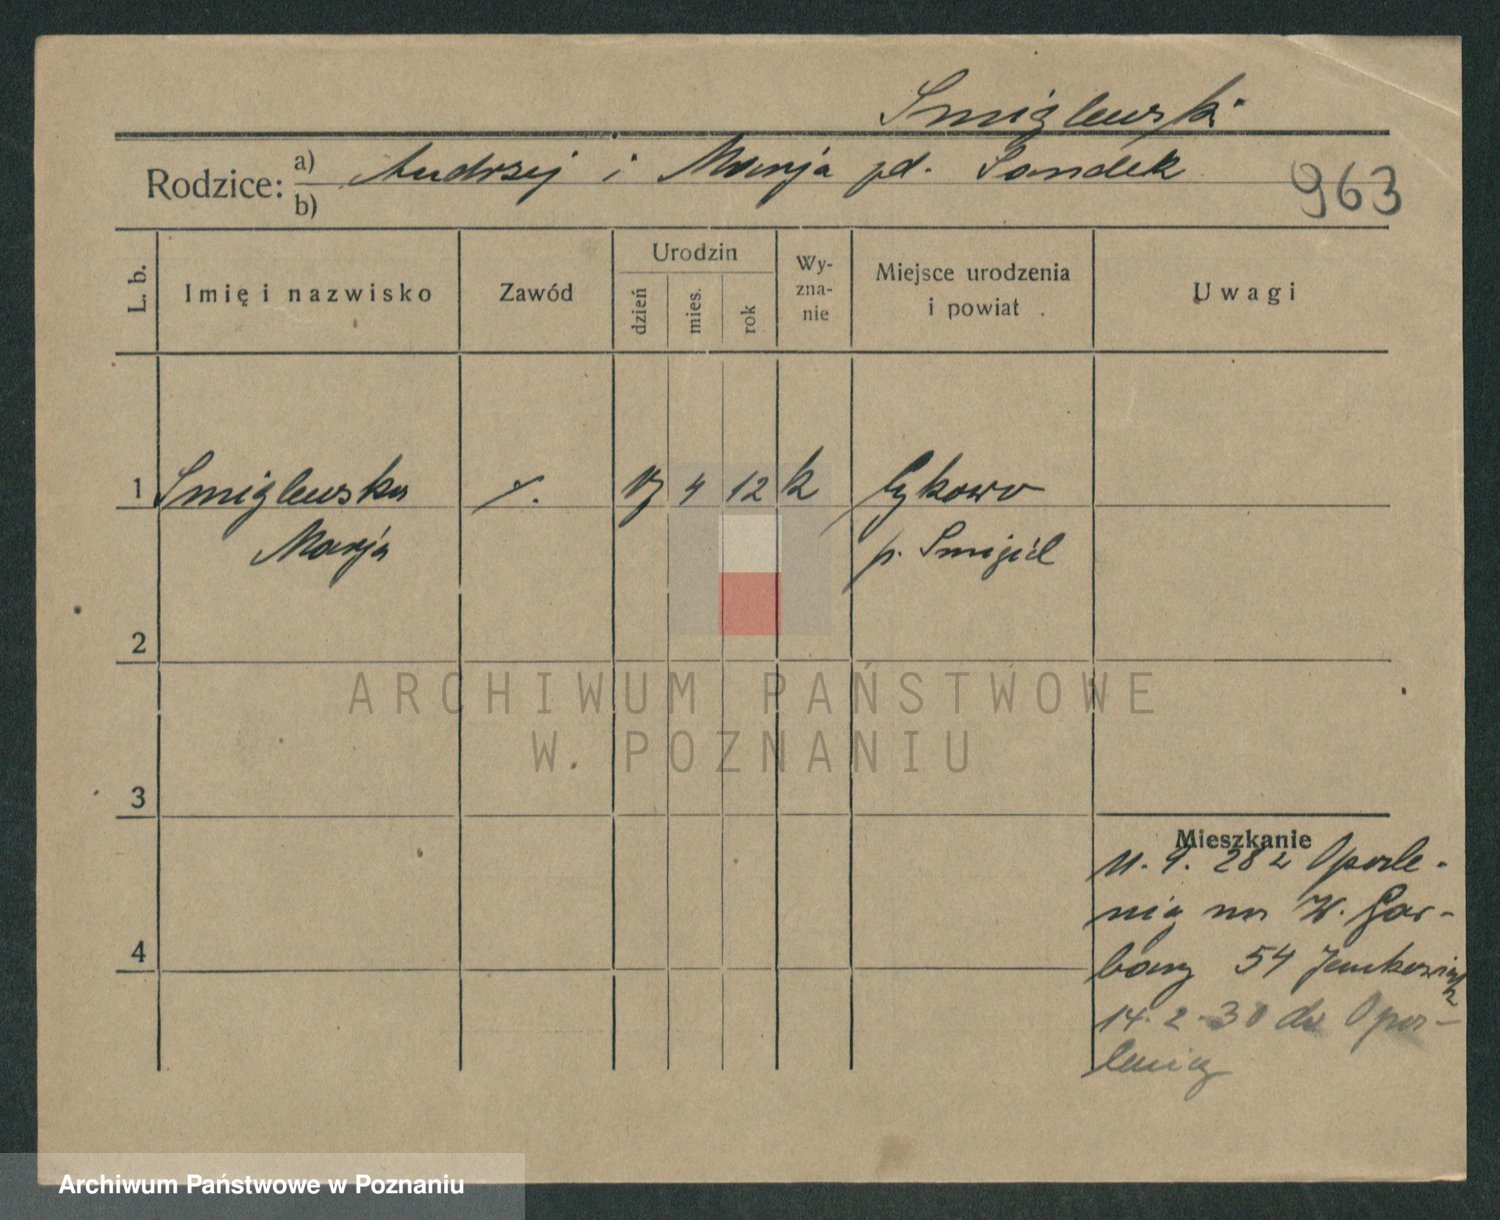 Smiglewski
Rodzice: a) Andrzej i Marja zd. Sandek
b)
963
L. b. Imię i nazwisko Zawód Urodzin dzień mies. rok Wyznanie Miejsce urodzenia i powiat Uwagi
1 Smiglewska 4 12 k
Marja p. Smigiel
2
ARCHIWUM PAŃSTWOWE
W POZNANIU
3
Mieszkanie
11. 9. 28 z Opale-
nic na W. Gar-
bary 54
4
14. 2. 30 do Opa-
lenicy
Archiwum Państwowe w Poznaniu